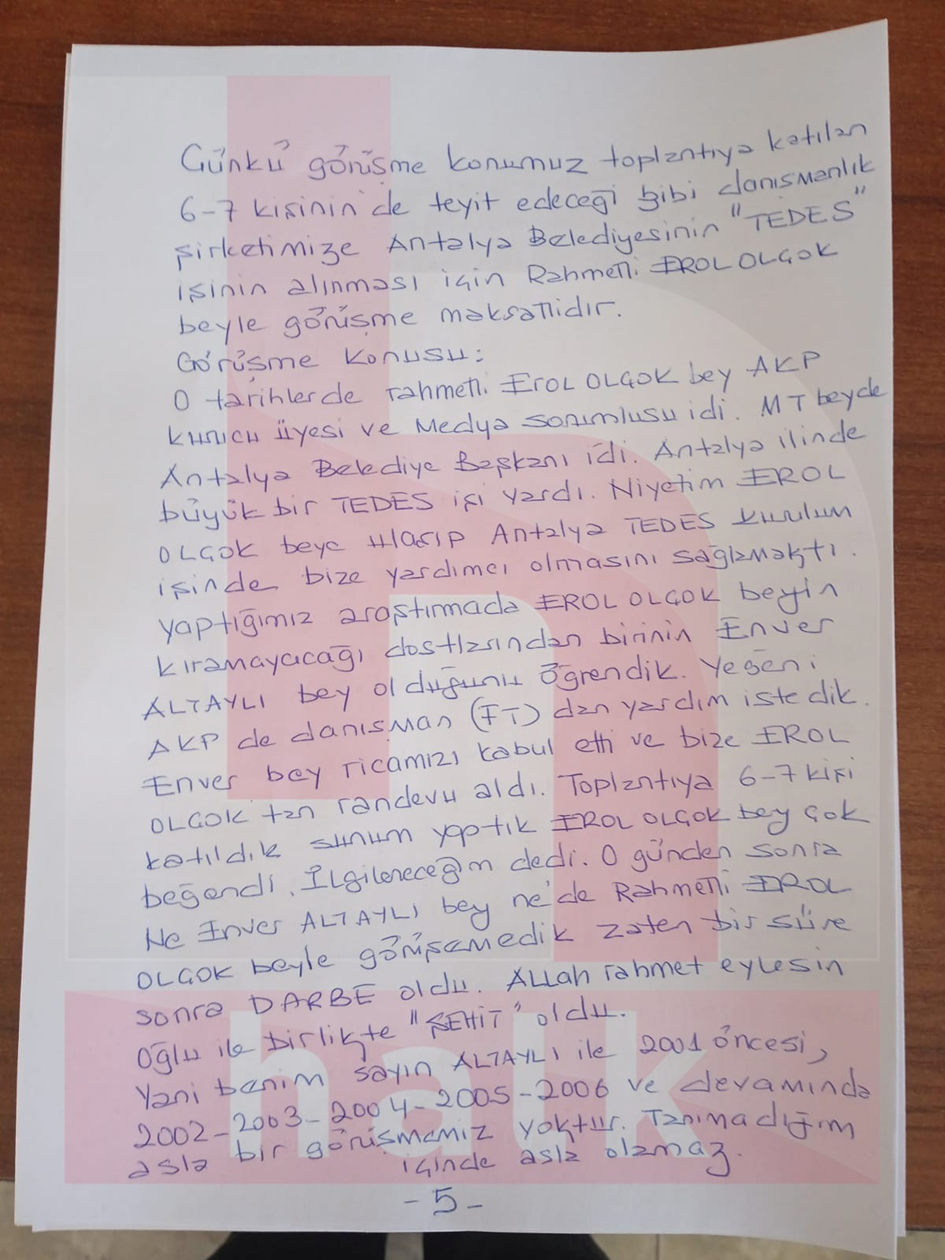 Günkü görüşme konumuz toplantıya katılan
6-7 kişinin'de teyit edeceği gibi danışmanlık
şirketimize Antalya Belediyesinin "TEDES"
işinin alınması için Rahmetli EROL OLÇOK
beyle görüşme maksatlıdır.
Görüşme Konusu:
O tarihlerde rahmetli EROL OLÇOK bey AKP
kurucu üyesi ve Medya sorumlusu idi. MT beyde
Antalya Belediye Başkanı idi. Antalya ilinde
büyük bir TEDES işi vardı. Niyetim EROL
OLÇOK beye ulaşıp Antalya TEDES kurulum
işinde bize yardımcı olmasını sağlamaktı.
yaptığımız araştırmada EROL OLÇOK beyin
kıramayacağı dostlarından birinin Enver
ALTAYLI bey olduğunu öğrendik. Yeğeni
AKP de danışman (FT) dan yardım istedik.
Enver bey ricamızı kabul etti ve bize EROL
OLÇOK tan randevu aldı. Toplantıya 6-7 kişi
katıldık sunum yaptık EROL OLÇOK bey çok
beğendi. İlgileneceğim dedi. O günden sonra
Ne Enver ALTAYLI bey ne'de Rahmetli EROL
OLÇOK beyle görüşemedik zaten bir süre
sonra DARBE oldu. Allah rahmet eylesin
Oğlu ile birlikte "ŞEHİT" oldu.
Yani benim sayın ALTAYLI ile 2001 öncesi,
2002-2003-2004-2005-2006 ve devamında
asla bir görüşmemiz yoktur. Tanımadığım
içinde asla olamaz.
-5-
halk